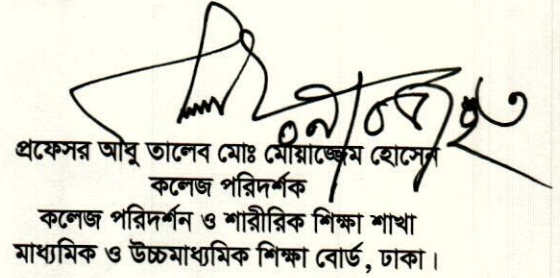 প্রফেসর আবু তালেব মোঃ মোয়াজ্জেম হোসেন
কলেজ পরিদর্শক
কলেজ পরিদর্শন ও শারীরিক শিক্ষা শাখা
মাধ্যমিক ও উচ্চমাধ্যমিক শিক্ষা বোর্ড, ঢাকা।